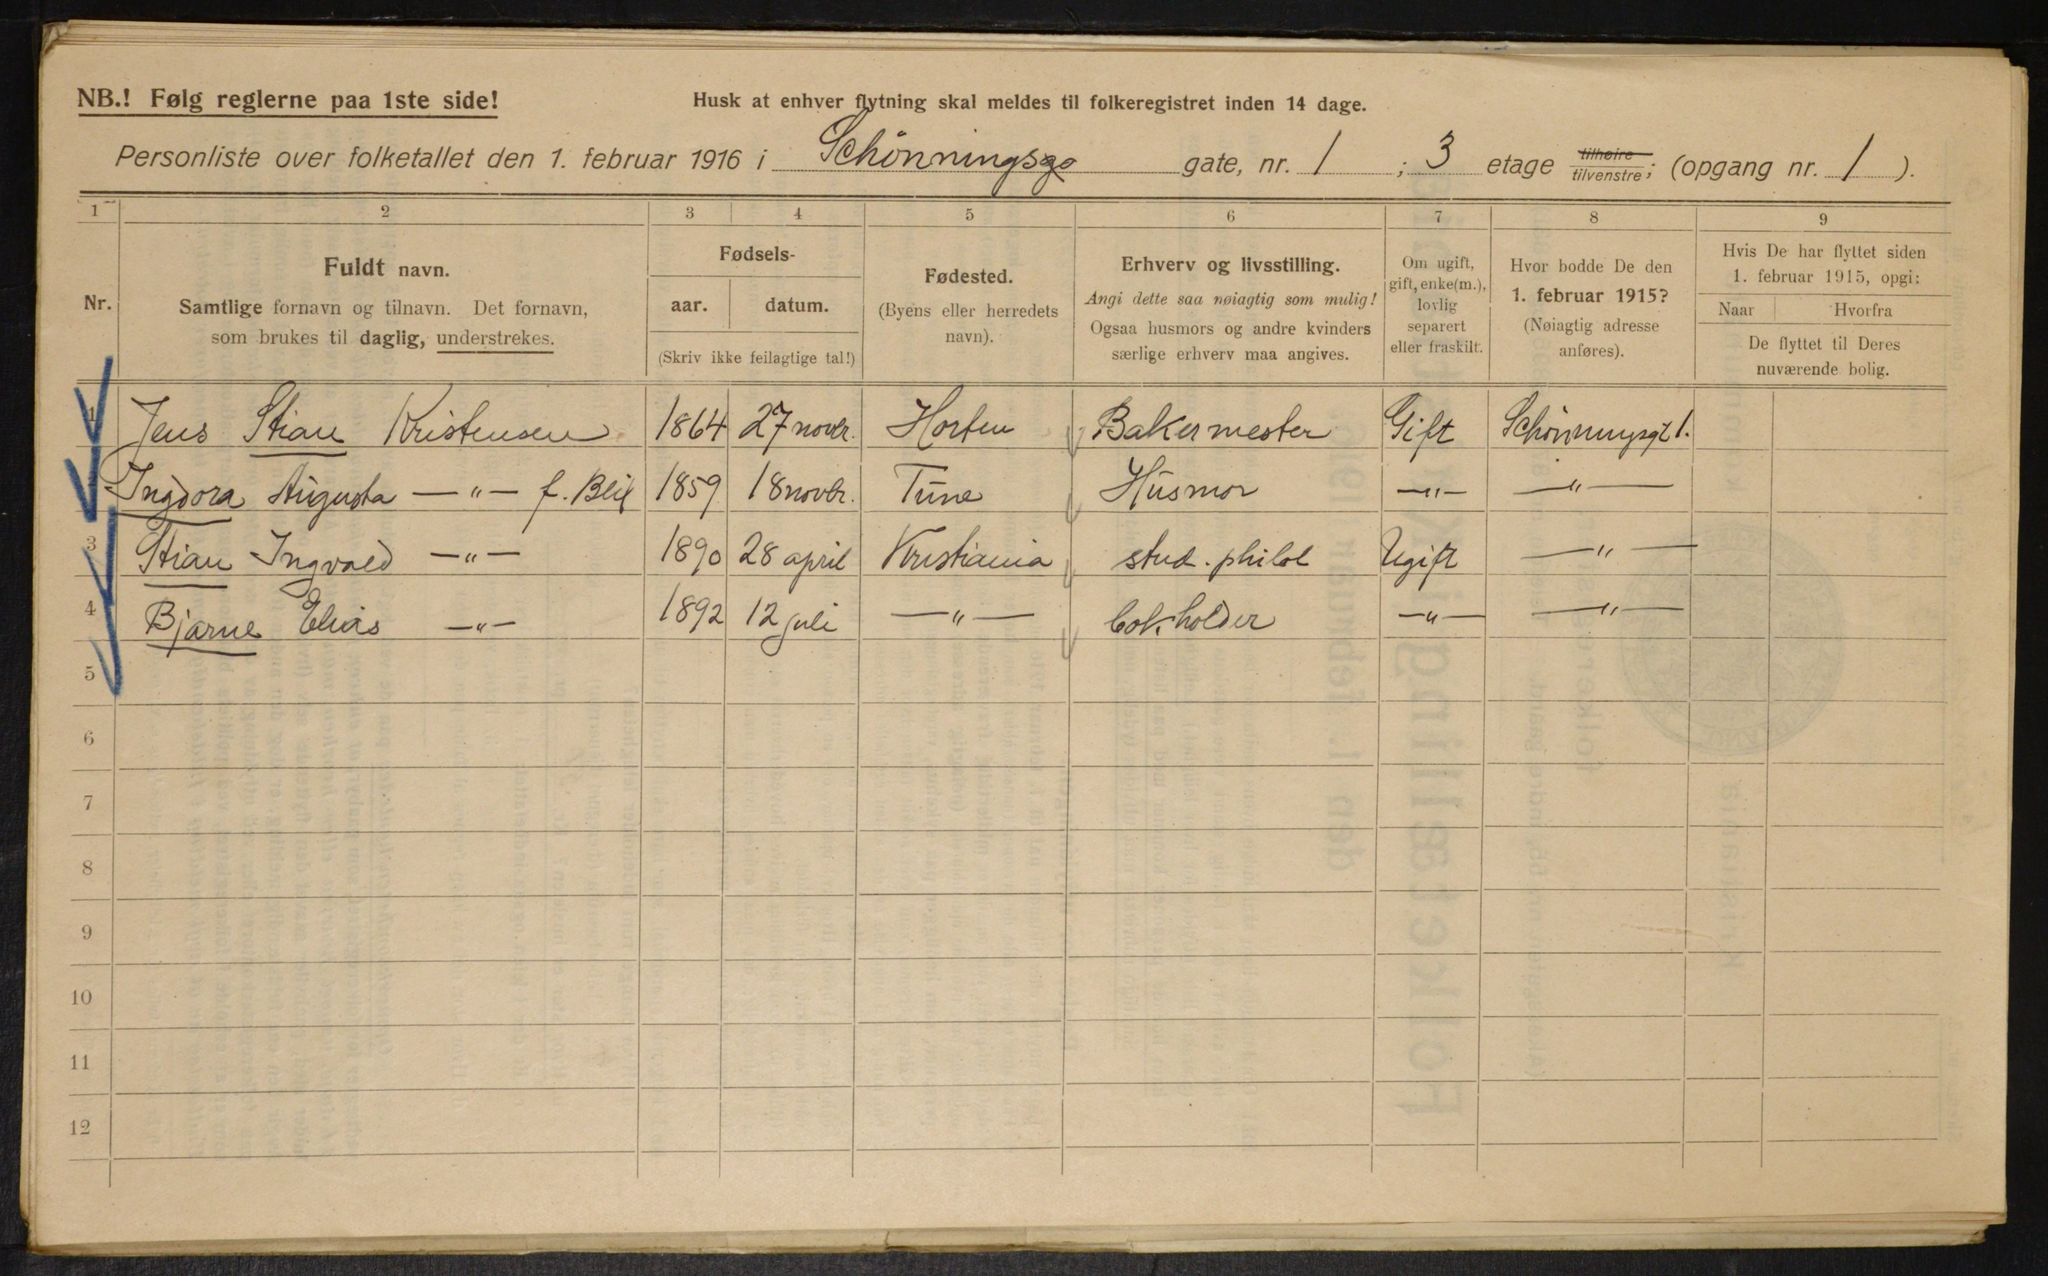 NB.! Følg reglerne paa 1ste side!
Husk at enhver flytning skal meldes til folkeregistret inden 14 dage.
Personliste over folketallet den 1. februar 1916 i Schønningsg gate, nr. 1 ; 3 etage tilhøire tilvenstre; (opgang nr. 1 ).
1 2 3 4 5 6 7 8 9
Nr.
Fuldt navn.
Samtlige fornavn og tilnavn. Det fornavn,
som brukes til daglig, understrekes.
Fødsels-
aar. datum.
(Skriv ikke feilagtige tal!)
Fødested.
(Byens eller herredets
navn).
Erhverv og livsstilling.
Angi dette saa nøiagtig som mulig!
Ogsaa husmors og andre kvinders
særlige erhverv maa angives.
Om ugift,
gift, enke(m.),
lovlig
separert
eller fraskilt.
Hvor bodde De den
1. februar 1915?
(Nøiagtig adresse
anføres).
Hvis De har flyttet siden
1. februar 1915, opgi:
Naar Hvorfra
De flyttet til Deres
nuværende bolig.
1 Jens Stian Kristensen 1864 27 novbr. Horten Bakermester Gift Schønningsgt 1.
Ingdora Augusta —"— f. 1859 18 novbr. Tune Husmor —"— —"—
3 Stian Ingvald —"— 1890 28 april Kristiania stud. philol Ugift —"—
4 Bjarne Elias —"— 1892 12 juli —"— bokholder —"— —"—
5
6
7
8
9
10
11
12